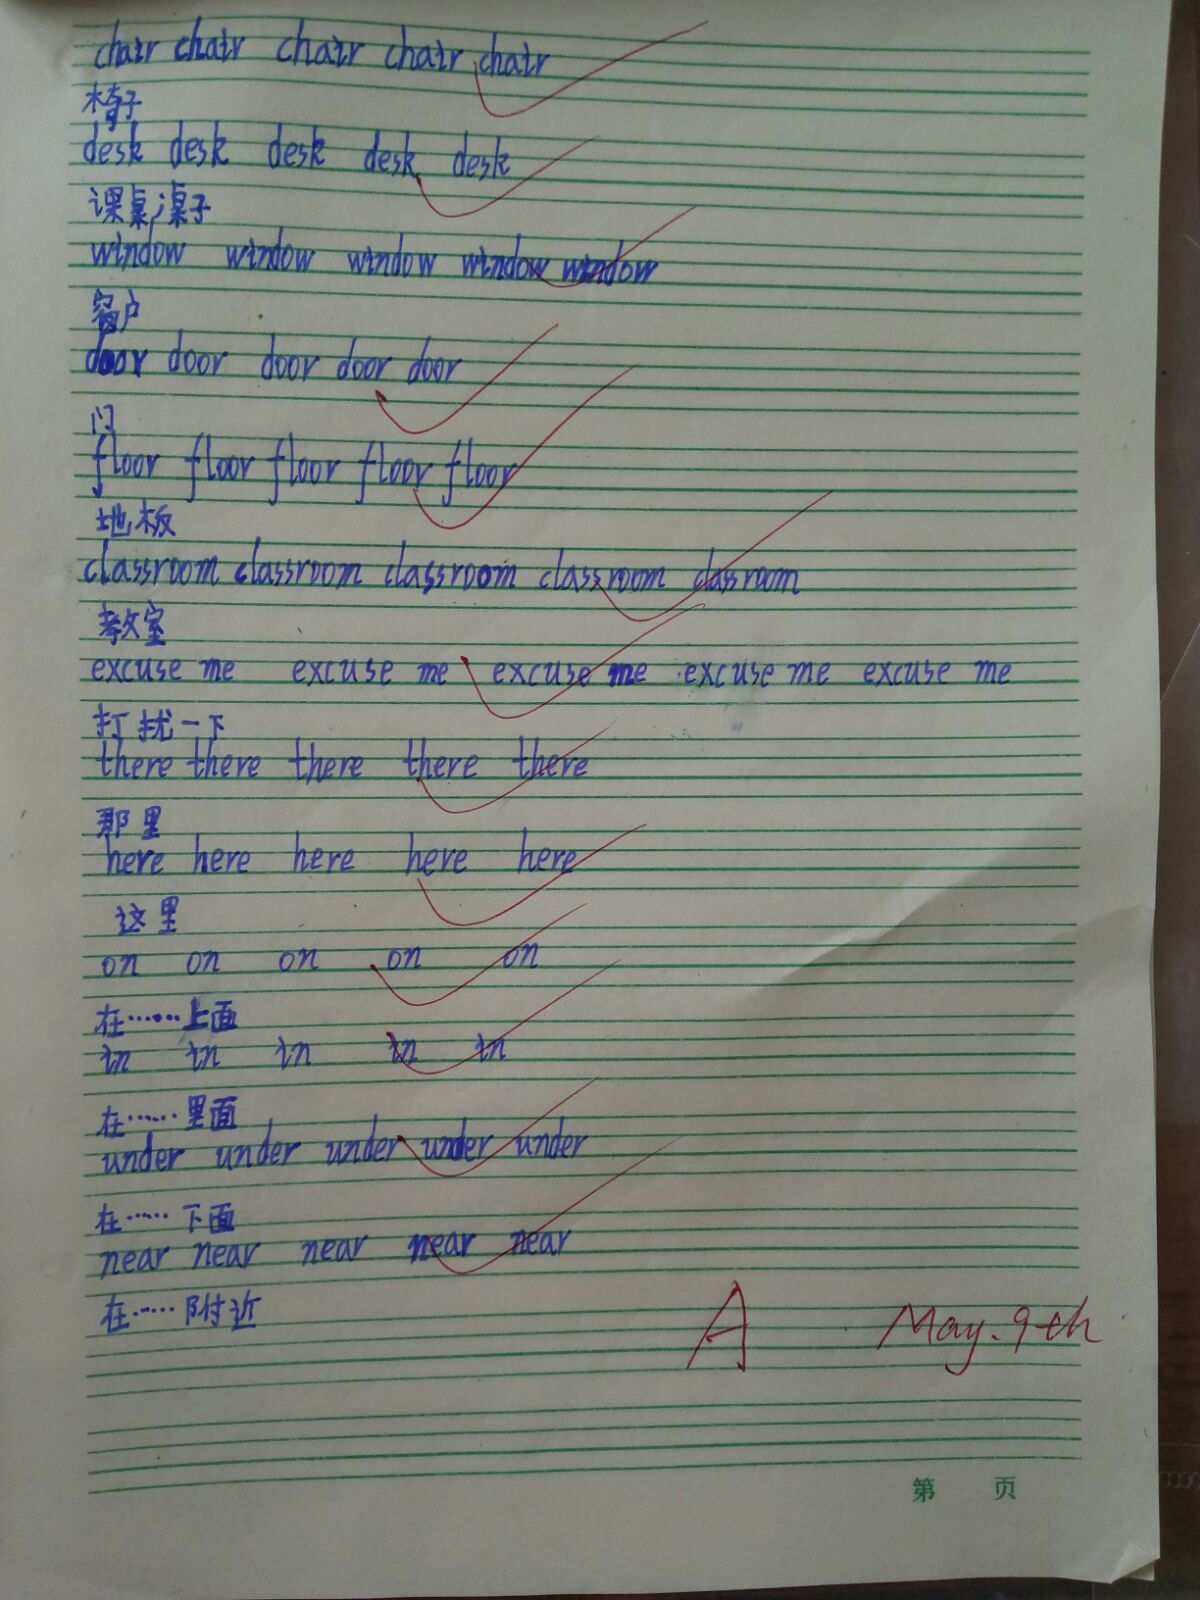 chair chair chair chair chair
椅子
desk desk desk desk desk
课桌,桌子
window window window window window
窗户
door door door door door
门
floor floor floor floor floor
地板
classroom classroom classroom classroom classroom
教室
excuse me excuse me excuse me excuse me excuse me
打扰一下
there there there there there
那里
here here here here here
这里
on on on on on
在……上面
in in in in in
在……里面
under under under under under
在……下面
near near near near near
在……附近
A May. 9th
第 页